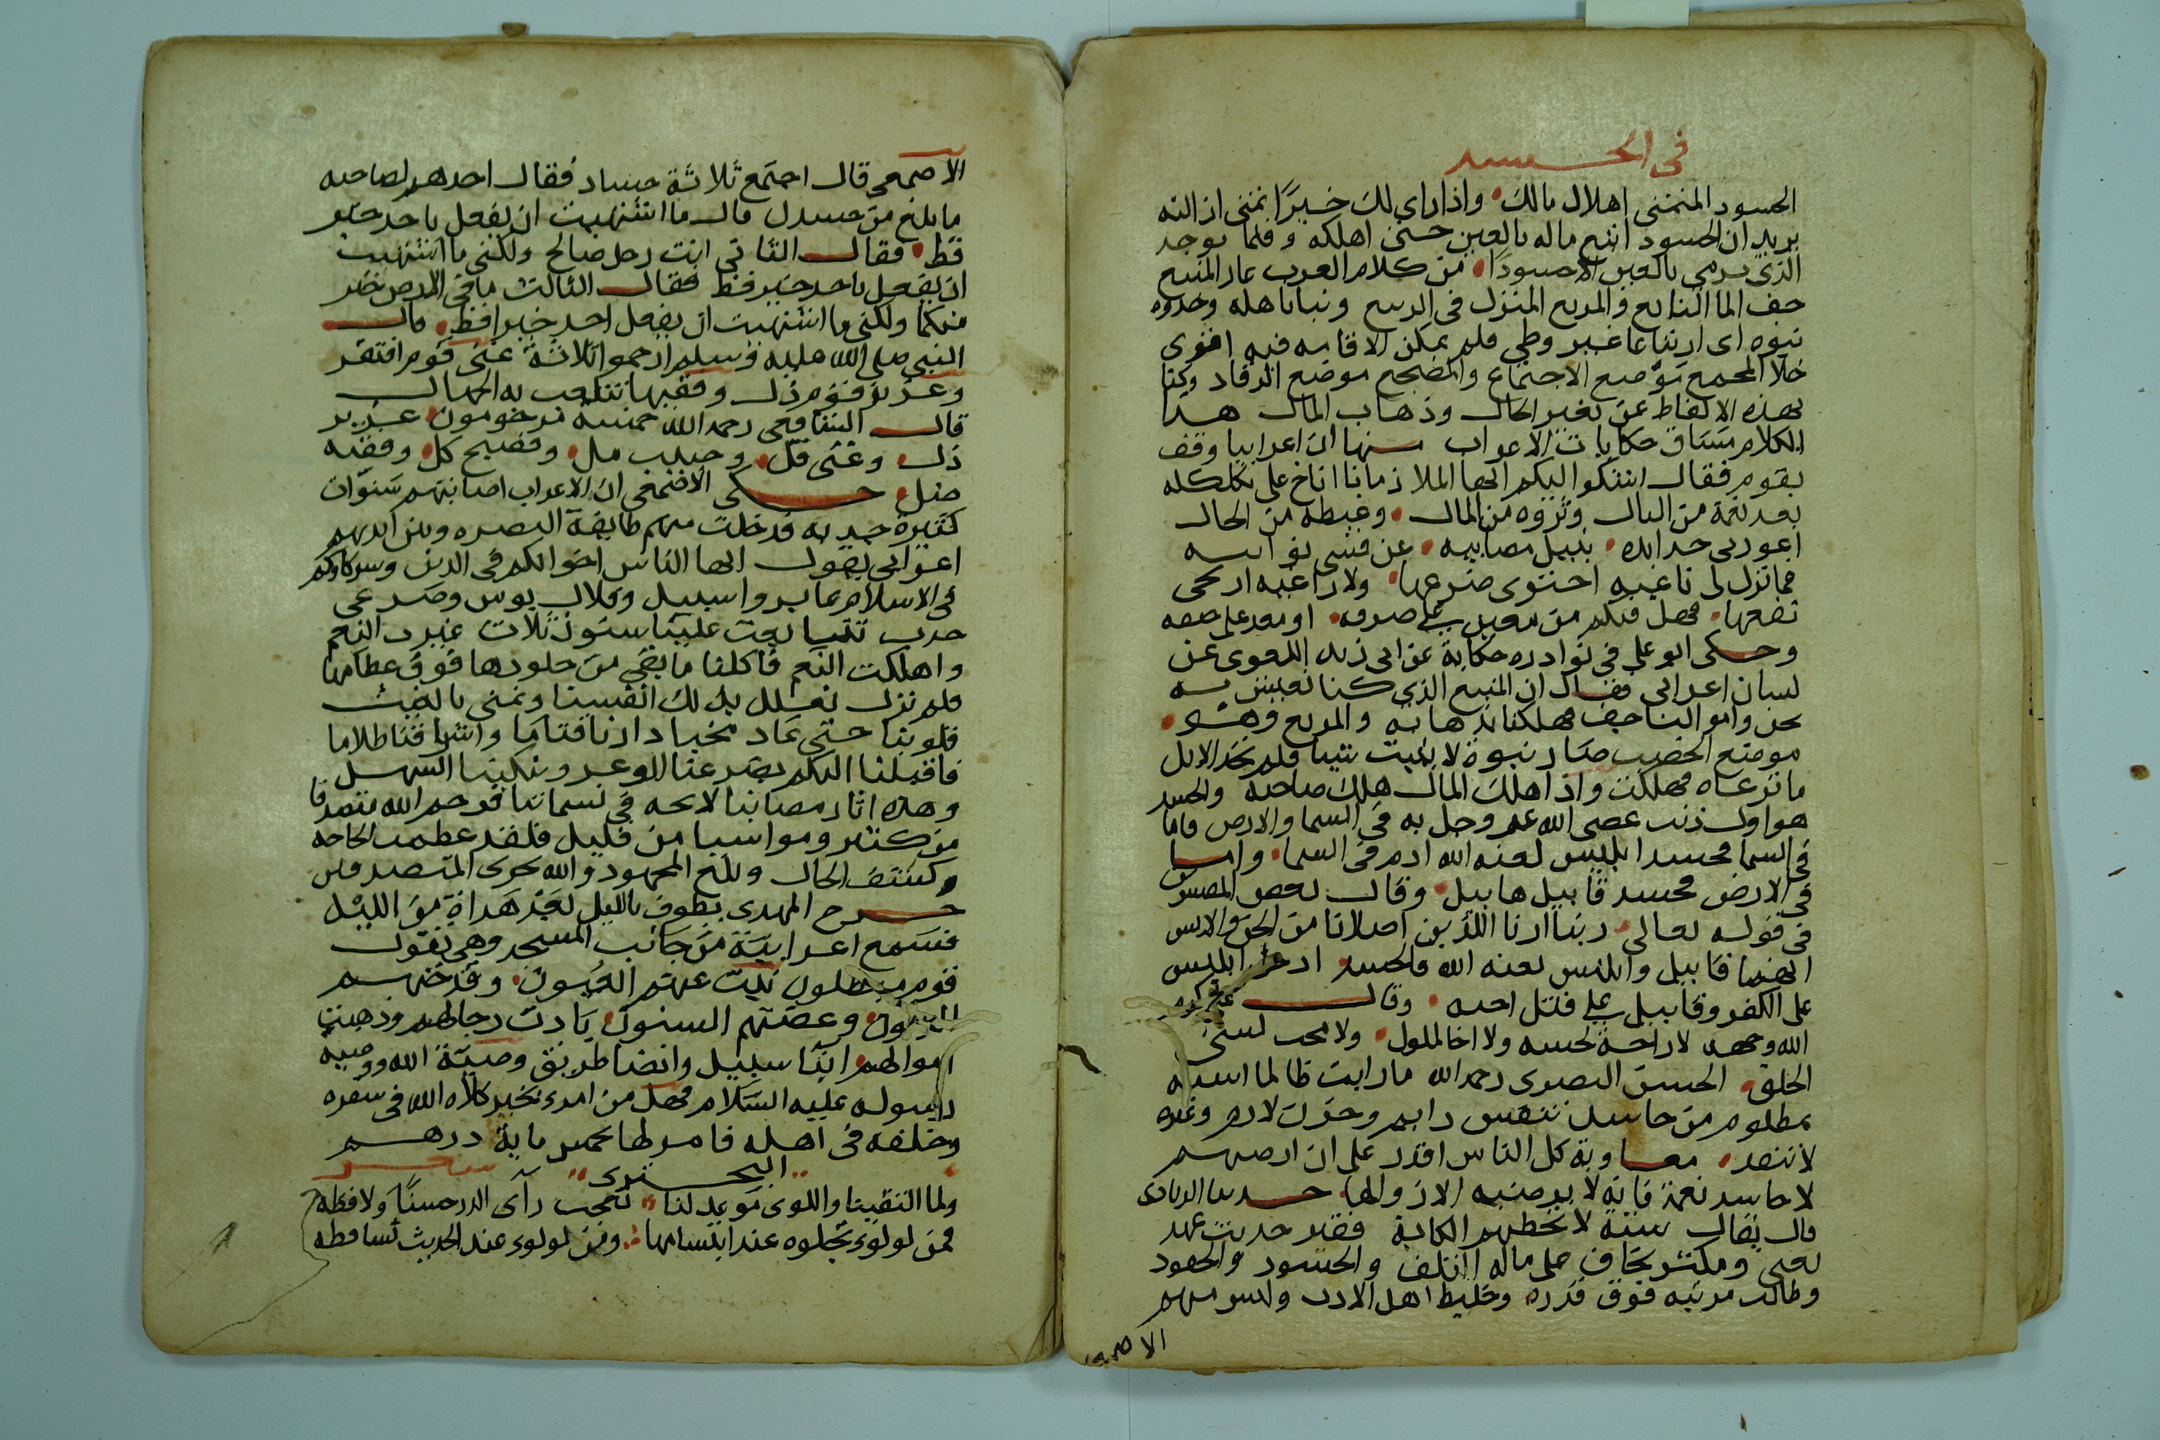 في الحسد
الحسود المتمنى اهلاك مالك واذا راى لك خيرًا تمنى ازالته
يريد ان الحسود اتبع ماله بالعين حتى اهلكه وقلما يوجد
الذى يرمى بالعين الا حسودًا من كلام العرب عار المنبع
جف الما النابع والمربع المنزل في الربيع ونبا باهله وجدوه
نبوه اى ارتفاعا غير وطى فلم يمكن الاقامه فيه اقوى
خلا المجمع موضع الاجتماع والمضجع موضع الرقاد وكنا
بهذه الالفاظ عن تغير الحال وذهاب المال هذا
الكلام مساق حكايات الاعراب منها ان اعرابيا وقف
بقوم فقال اشكوا اليكم ايها الملا زمانا اناخ على بكلكله
بعد نعمة من البال وثروه من المال وغبطه من الحال
اعور بى جدايده بنبل مصايبه عن قسى نوايبه
فما ترك لى ثاغيه اجتوى ضرعها ولا راغيه ارتجى
نفعها فهل فيكم من معين على صرفه او معد على حتفه
وحكى ابو على في نوادره حكاية عن ابى زيد اللغوى عن
لسان اعرابى فقال ان المنبع الذى كنا نعيش به
نحن واموالنا جف فهلكنا بذهابه والمربع وهو
موضع الخصب صار نبوة لا ينبت شيا فلم تجد الابل
ما ترعاه فهلكت واذا هلك المال هلك صاحبه والحسد
هو اول ذنب عصى الله عز وجل به في السما والارض فاما
في السما فحسد ابليس لعنه الله ادم في السما واما
في الارض فحسد قابيل هابيل وقال بعض المفسرين
في قوله تعالى ربنا ارنا اللذين اضلانا من الجن والانس
ايضا قابيل وابليس لعنه الله فالحسد ابليس
على الكفر وقابيل على قتل اخيه وقال على كرم
الله وجهه لا راحة لحسود ولا اخا لملول ولا محب لسئ
الخلق الحسن البصرى رحمه الله ما رايت ظالما اشبه
بمظلوم من حاسد نفس دايم وحزن لازم وعبره
لا تنفد معاوية كل الناس اقدر على ان ارضيهم
الا حاسد نعمة فانه لا يرضيه الا زوالها حدثنا الرياشى
قال يقال ستة لا تخطيهم الكابة فقير حديث عهد
بغنى ومكثر يخاف على ماله التلف والحسود والحقود
وطالب مرتبه فوق قدره وخليط اهل الادب وليس منهم
الاصمعى
الاصمعى قال اجتمع ثلاثة حساد فقال احدهم لصاحبه
ما بلغ من حسدك قال ما اشتهيت ان يفعل باحد خير
قط فقال الثانى انت رجل صالح ولكنى ما اشتهيت
ان يفعل باحد خير قط فقال الثالث ما في الارض خير
منكما ولكنى ما اشتهيت ان يفعل احد خيرا قط قال
النبى صلى الله عليه وسلم ارحموا ثلاثة غنى قوم افتقر
وعزيز قوم ذل وفقيها تتلاعب به الجهال
قال الشافعى رحمه الله خمسة مرحومون عزيز
ذل وغنى قل وحبيب مل وفصيح كل وفقيه
ضل حكى الاصمعى ان الاعراب اصابتهم سنوات
كثيرة جدبه فدخلت منهم طايفة البصره وبين ايديهم
اعرابى يقول ايها الناس اخوانكم في الدين وشركاوكم
في الاسلام عابروا سبيل وفلال بوس وصرعى
جدب تتابعت علينا سنون ثلاث غيرت النعم
واهلكت النعم فاكلنا ما بقى من جلودها فوق عظامها
فلم نزل نعلل بذلك انفسنا ونمنى بالغيث
قلوبنا حتى عاد مخنا دارنا قتاما واشراقنا ظلاما
فاقبلنا اليكم يصرعنا الوعر وينكبنا السهل
وهذه اثار مصابنا لايحه في سماتنا فرحم الله متصدقا
من كثير ومواسيا من قليل فلقد عظمت الحاجه
وكسف البال وبلغ المجهود والله يجزى المتصدقين
خرج المهدى يطوف بالليل بعد هداة من الليل
فسمع اعرابية من جانب المسجد وهى تقول
قوم نبت عنهم العيون وفدحهم
الديون وعضتهم السنون بادت رجالهم وذهبت
اموالهم ابنا سبيل وانضا طريق وصية الله ووصيه
رسوله عليه السلام فهل من امرء بخير كلاه الله في سفره
وخلفه في اهله فامر لها بخمس ماية درهم
البحترى
ولما التقينا واللوى موعد لنا تعجب رآى الدر حسنًا ولاقطه
فمن لولوء تجلوه عند ابتسامها ومن لولوء عند الحديث تساقطه